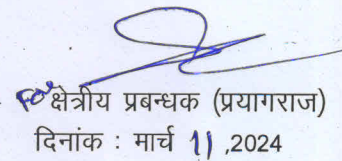 For क्षेत्रीय प्रबन्धक (प्रयागराज)
दिनांक : मार्च 11 ,2024